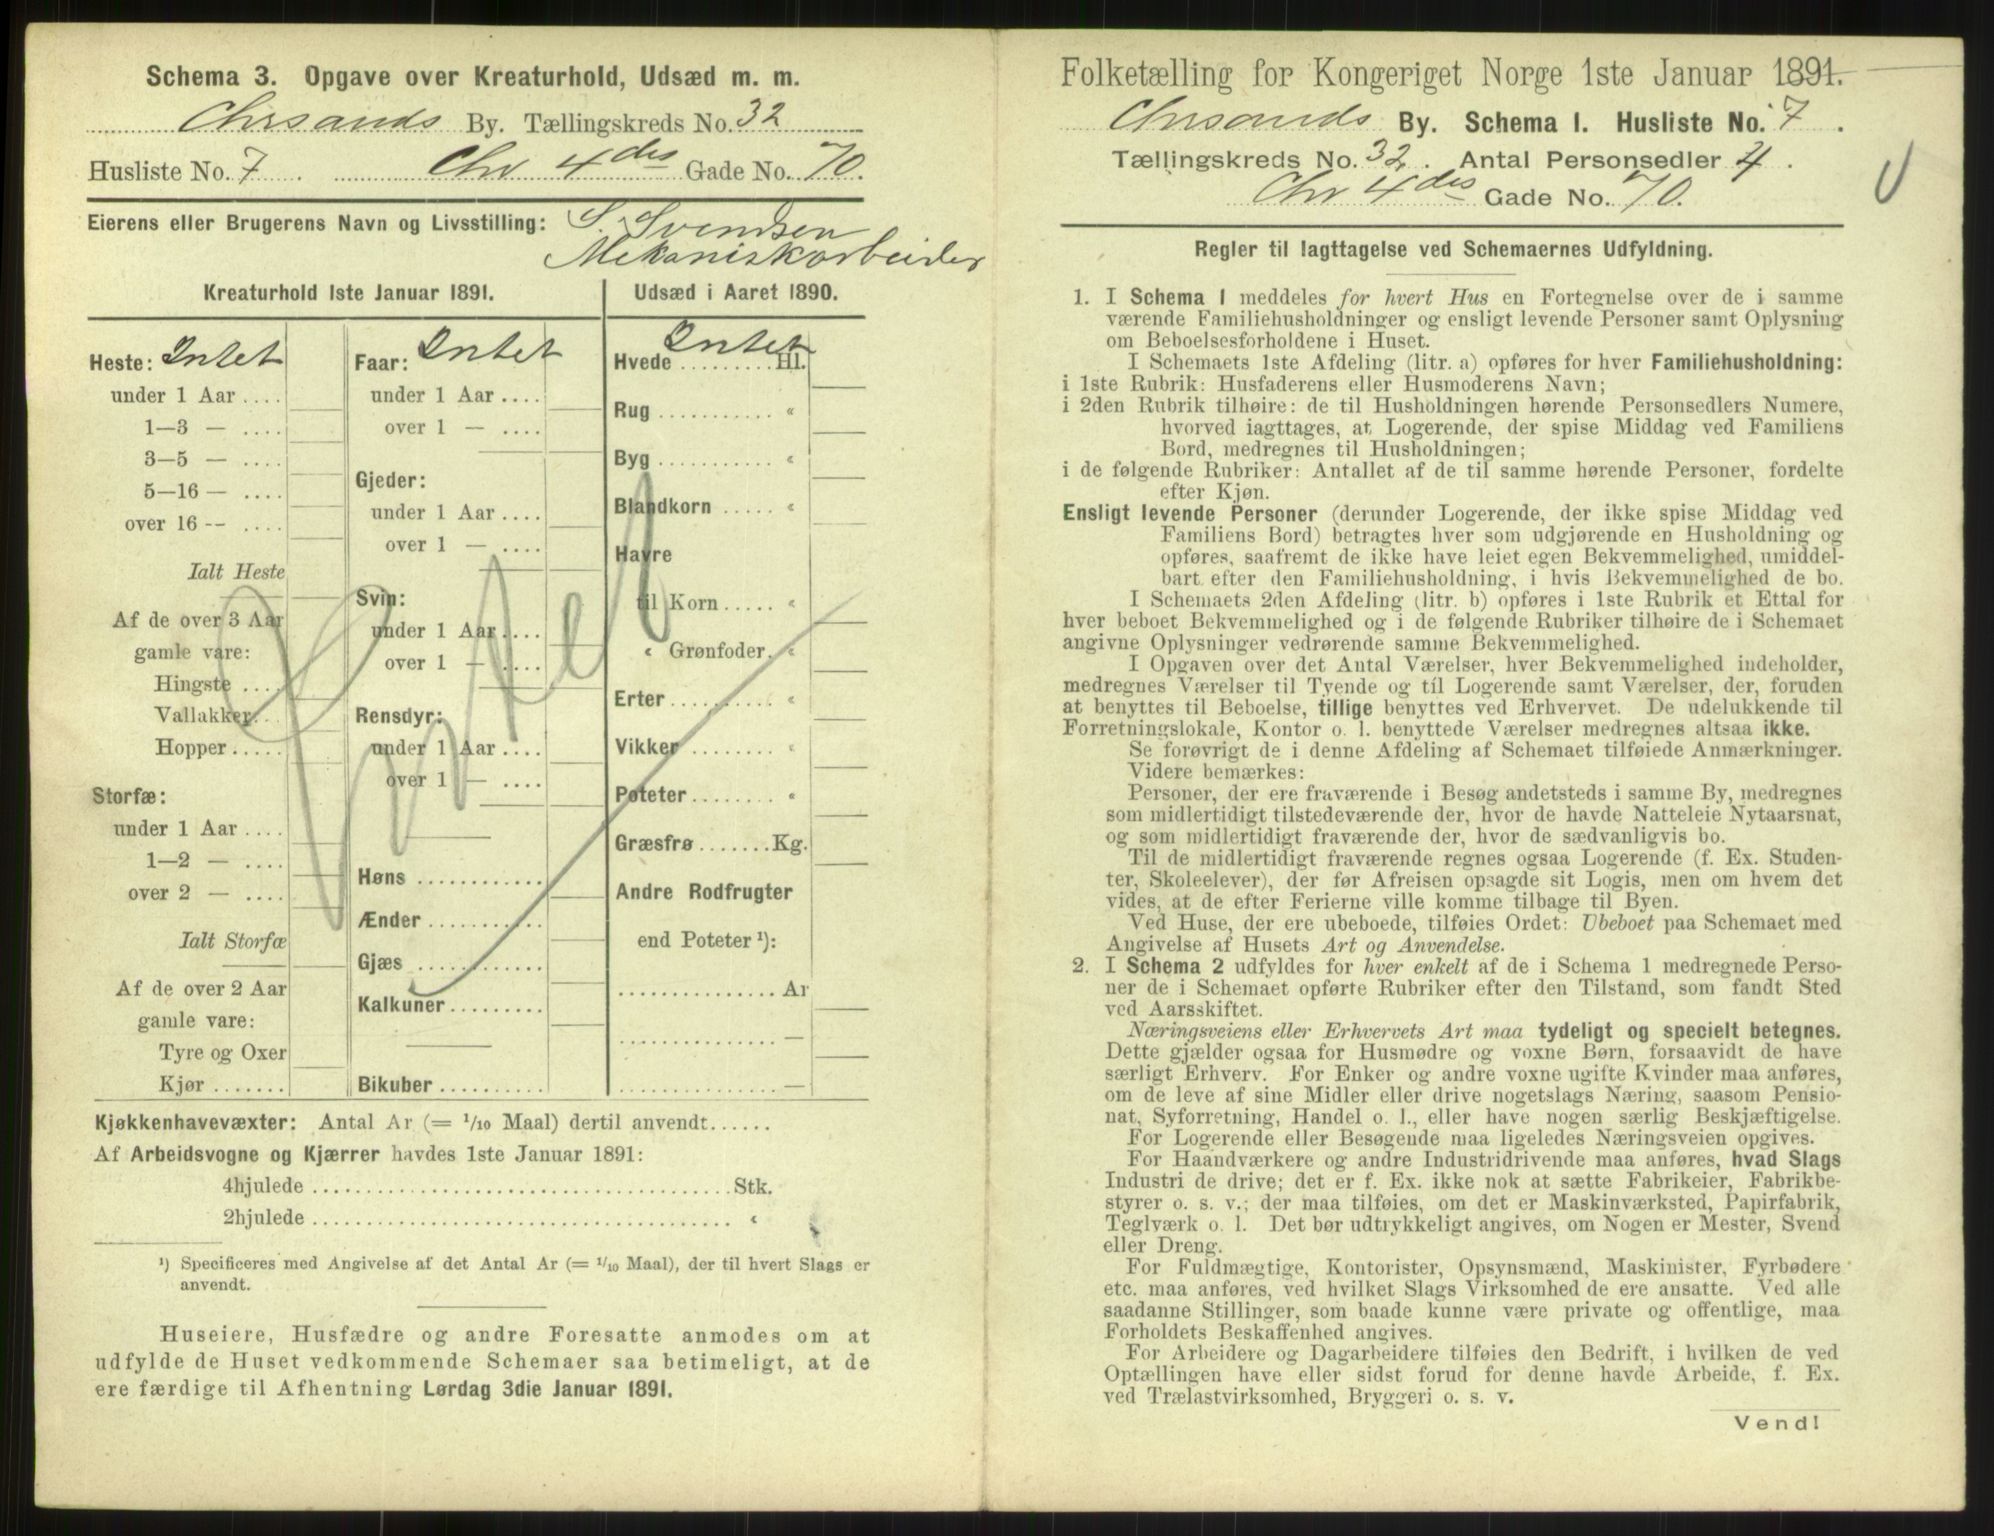 Schema 3. Opgave over Kreaturhold, Udsæd m. m.
Chrsands By. Tællingskreds No. 32
Husliste No. 7. Chr 4des Gade No. 70.
Eierens eller Brugerens Navn og Livsstilling: S. Svendsen
Mekaniskarbeider
Kreaturhold 1ste Januar 1891.
Heste: Intet
under 1 Aar ....
1—3 — ....
3—5 — ....
5—16 — ....
over 16 -- ....
Ialt Heste
Af de over 3 Aar
gamle vare:
Hingste ....
Vallakker..
Hopper .....
Storfæ:
under 1 Aar ....
1—2 — ....
over 2 — ....
Ialt Storfæ
Af de over 2 Aar
gamle vare:
Tyre og Oxer
Kjør .......
Faar: Intet
under 1 Aar ....
over 1 — ....
Gjeder:
under 1 Aar ....
over 1 — ....
Svin:
under 1 Aar ....
over 1 — ....
Rensdyr:
under 1 Aar ....
over 1 — ....
Høns ............
Ænder ...........
Gjæs ............
Kalkuner.........
Bikuber ..........
Udsæd i Aaret 1890.
Intet
Hvede .........Hl.
Rug ........... «
Byg ........... «
Blandkorn ..... «
Havre
til Korn ..... «
« Grønfoder. «
Erter ......... «
Vikker ........ «
Poteter........ «
Græsfrø .......Kg.
Andre Rodfrugter
end Poteter ¹):
............... Ar
............... —
............... —
Kjøkkenhavevæxter: Antal Ar (= 1/10 Maal) dertil anvendt......
Af Arbeidsvogne og Kjærrer havdes 1ste Januar 1891:
4hjulede ........................................Stk.
2hjulede ........................................ «
¹) Specificeres med Angivelse af det Antal Ar (= 1/10 Maal), der til hvert Slags er
anvendt.
Huseiere, Husfædre og andre Foresatte anmodes om at
udfylde de Huset vedkommende Schemaer saa betimeligt, at de
ere færdige til Afhentning Lørdag 3die Januar 1891.
Folketælling for Kongeriget Norge 1ste Januar 1891.
Chrsands By. Schema I. Husliste No. 7.
Tællingskreds No. 32. Antal Personsedler 4.
Chr 4des Gade No. 70.
Regler til Iagttagelse ved Schemaernes Udfyldning.
1. I Schema 1 meddeles for hvert Hus en Fortegnelse over de i samme
værende Familiehusholdninger og ensligt levende Personer samt Oplysning
om Beboelsesforholdene i Huset.
I Schemaets 1ste Afdeling (litr. a) opføres for hver Familiehusholdning:
i 1ste Rubrik: Husfaderens eller Husmoderens Navn;
i 2den Rubrik tilhøire: de til Husholdningen hørende Personsedlers Numere,
hvorved iagttages, at Logerende, der spise Middag ved Familiens
Bord, medregnes til Husholdningen;
i de følgende Rubriker: Antallet af de til samme hørende Personer, fordelte
efter Kjøn.
Ensligt levende Personer (derunder Logerende, der ikke spise Middag ved
Familiens Bord) betragtes hver som udgjørende en Husholdning og
opføres, saafremt de ikke have leiet egen Bekvemmelighed, umiddel-
bart efter den Familiehusholdning, i hvis Bekvemmelighed de bo.
I Schemaets 2den Afdeling (litr. b) opføres i 1ste Rubrik et Ettal for
hver beboet Bekvemmelighed og i de følgende Rubriker tilhøire de i Schemaet
angivne Oplysninger vedrørende samme Bekvemmelighed.
I Opgaven over det Antal Værelser, hver Bekvemmelighed indeholder,
medregnes Værelser til Tyende og til Logerende samt Værelser, der, foruden
at benyttes til Beboelse, tillige benyttes ved Erhvervet. De udelukkende til
Forretningslokale, Kontor o. l. benyttede Værelser medregnes altsaa ikke.
Se forøvrigt de i denne Afdeling af Schemaet tilføiede Anmærkninger.
Videre bemærkes:
Personer, der ere fraværende i Besøg andetsteds i samme By, medregnes
som midlertidigt tilstedeværende der, hvor de havde Natteleie Nytaarsnat,
og som midlertidigt fraværende der, hvor de sædvanligvis bo.
Til de midlertidigt fraværende regnes ogsaa Logerende (f. Ex. Studen-
ter, Skoleelever), der før Afreisen opsagde sit Logis, men om hvem det
vides, at de efter Ferierne ville komme tilbage til Byen.
Ved Huse, der ere ubeboede, tilføies Ordet: Ubeboet paa Schemaet med
Angivelse af Husets Art og Anvendelse.
2. I Schema 2 udfyldes for hver enkelt af de i Schema 1 medregnede Perso-
ner de i Schemaet opførte Rubriker efter den Tilstand, som fandt Sted
ved Aarsskiftet.
Næringsveiens eller Erhvervets Art maa tydeligt og specielt betegnes.
Dette gjælder ogsaa for Husmødre og voxne Børn, forsaavidt de have
særligt Erhverv. For Enker og andre voxne ugifte Kvinder maa anføres,
om de leve af sine Midler eller drive nogetslags Næring, saasom Pensio-
nat, Syforretning, Handel o. l., eller have nogen særlig Beskjæftigelse.
For Logerende eller Besøgende maa ligeledes Næringsveien opgives.
For Haandværkere og andre Industridrivende maa anføres, hvad Slags
Industri de drive; det er f. Ex. ikke nok at sætte Fabrikeier, Fabrikbe-
styrer o. s. v.; der maa tilføies, om det er Maskinværksted, Papirfabrik,
Teglværk o. l. Det bør udtrykkeligt angives, om Nogen er Mester, Svend
eller Dreng.
For Fuldmægtige, Kontorister, Opsynsmænd, Maskinister, Fyrbødere
etc. maa anføres, ved hvilket Slags Virksomhed de ere ansatte. Ved alle
saadanne Stillinger, som baade kunne være private og offentlige, maa
Forholdets Beskaffenhed angives.
For Arbeidere og Dagarbeidere tilføies den Bedrift, i hvilken de ved
Optællingen have eller sidst forud for denne havde Arbeide, f. Ex.
ved Trælastvirksomhed, Bryggeri o. s. v.
Vend!